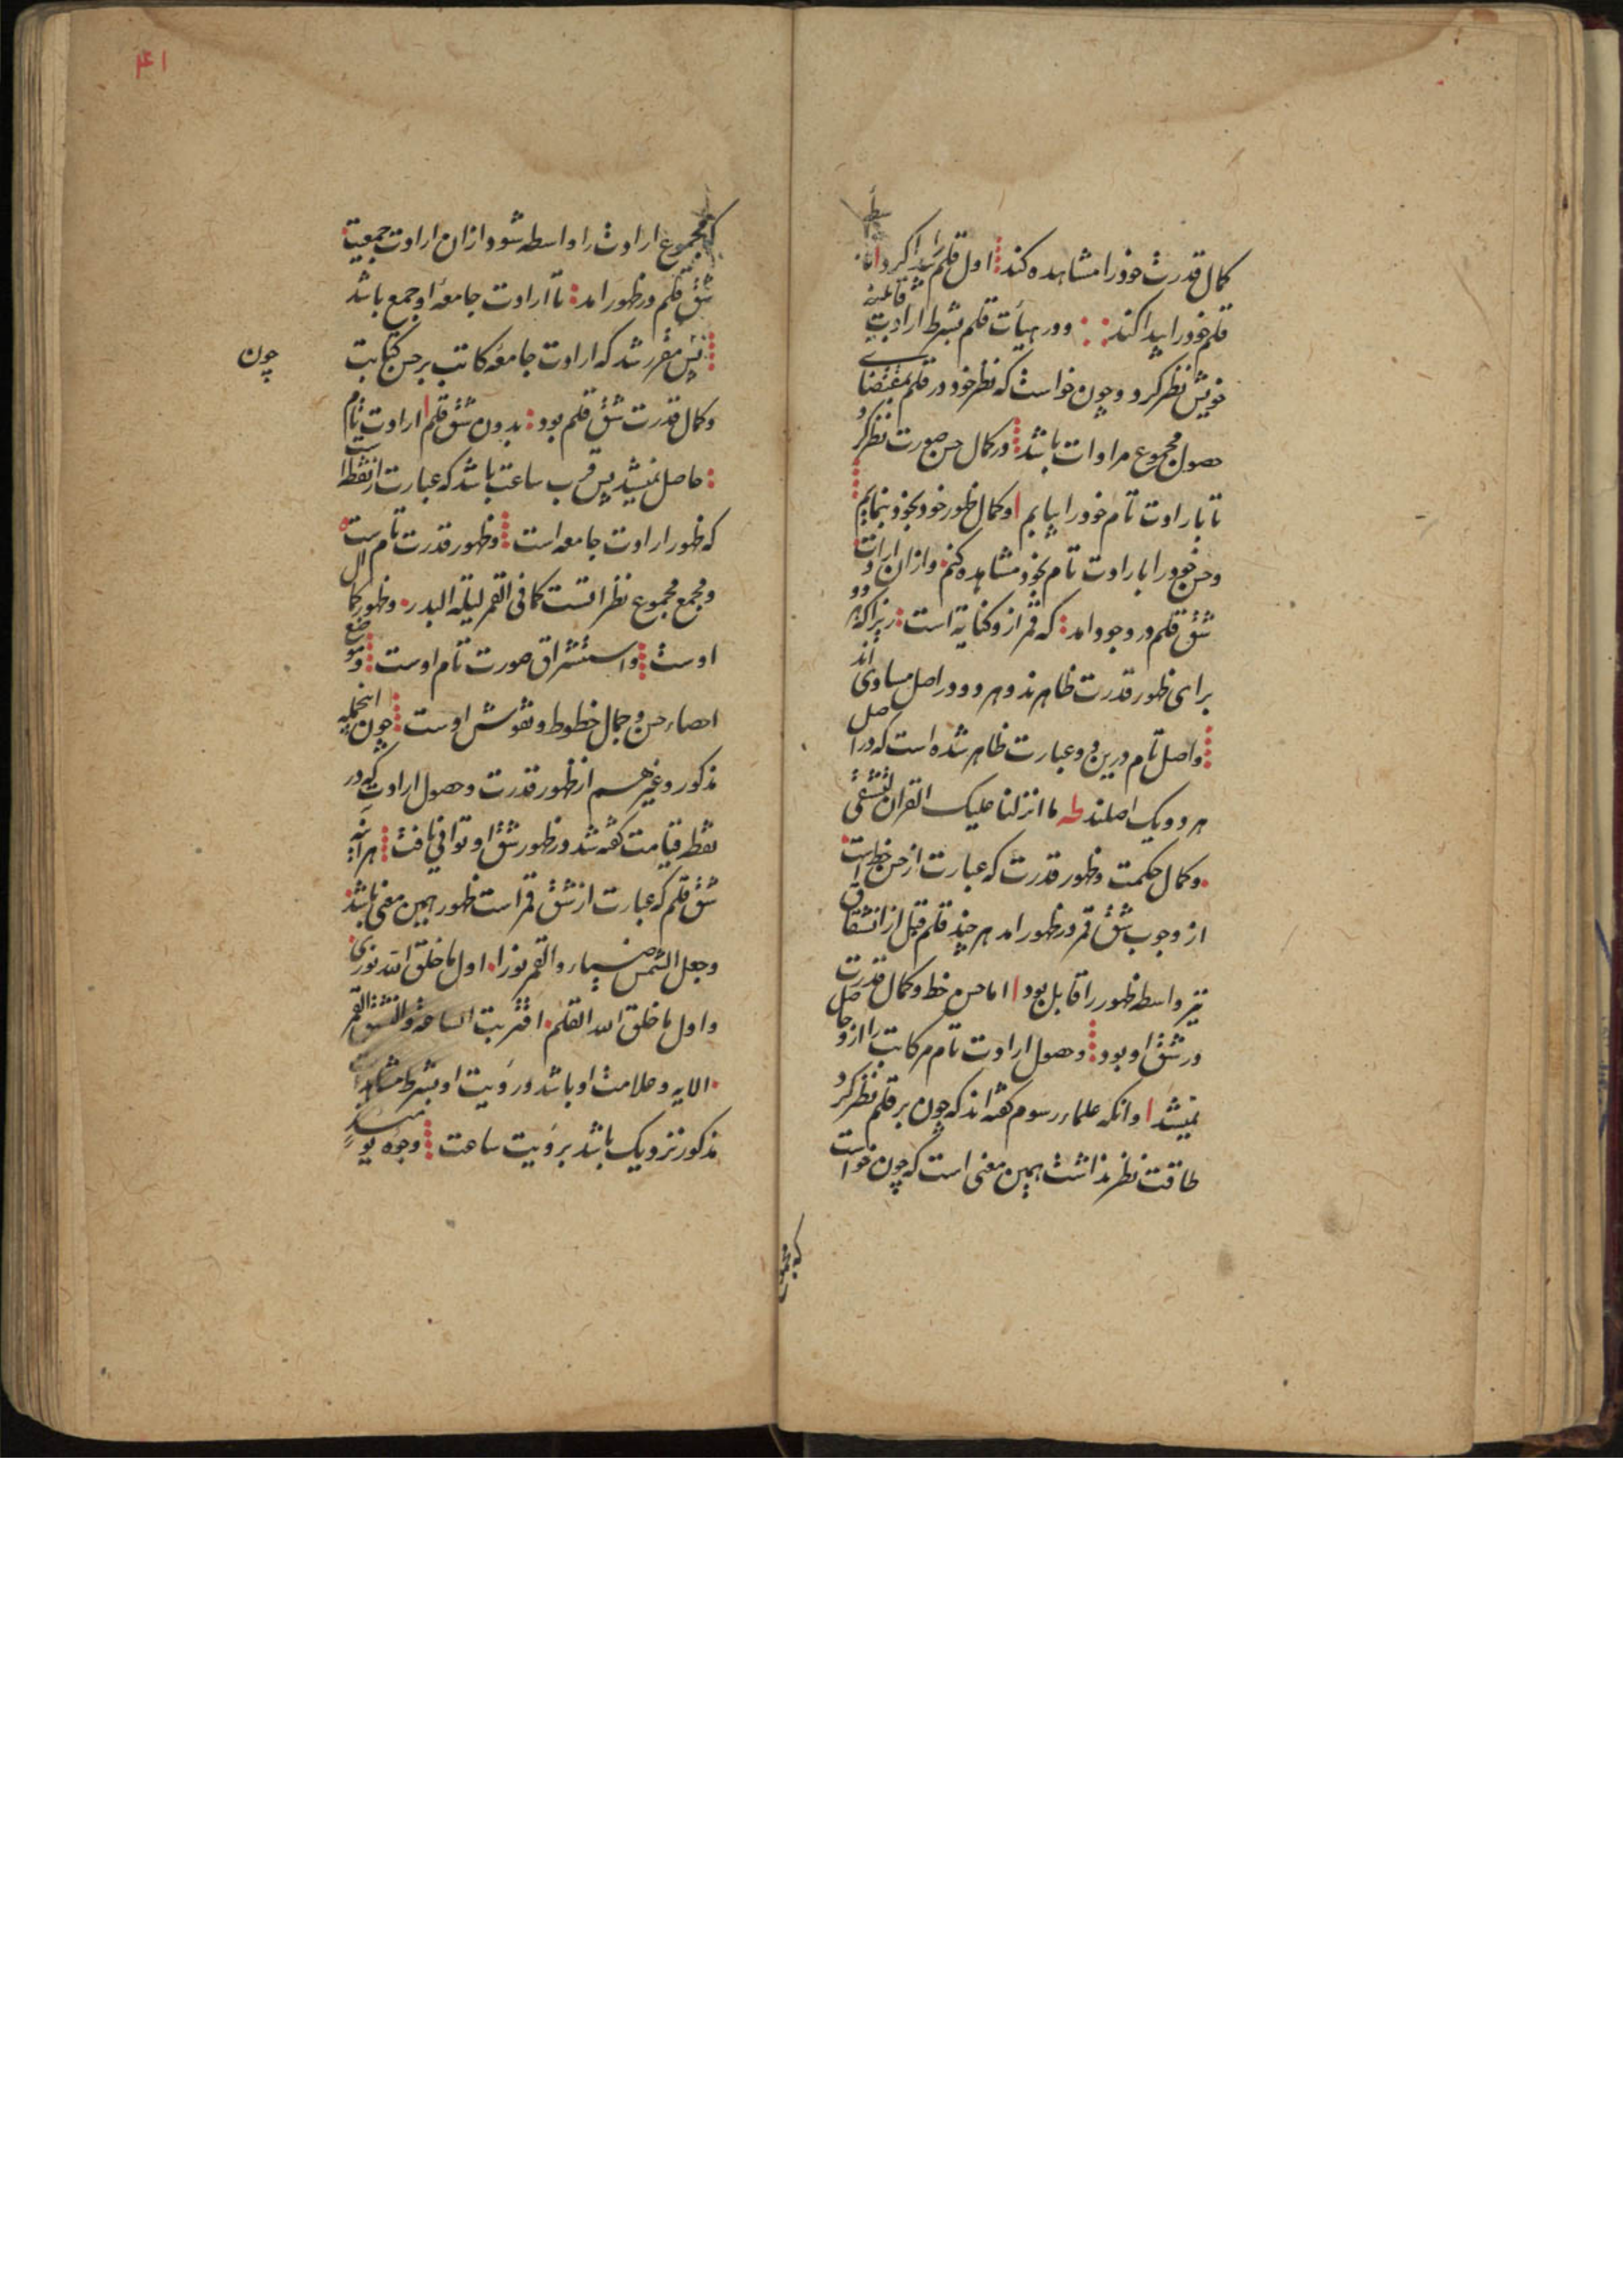 کمال قدرت خود را مشاهده کند اول قلم را پیدا کرد
قلم خود را پیدا کند و در هیأت قلم بشرط ارادت
خویش نظر کرد و چون خواست که نظر خود در قلم بمقتضای
حصول مجموع مرادات باشد در کمال حسن صورت نظر کرد
تا بارادت تام خود را بیابم و کمال ظهور خود بخود بنمایم
و حسن خود را بارادت تام بخود مشاهده کنم و از ان ارادت
شق قلم در وجود امد که قمر ازو کنایة است زیرا که هر دو
برای ظهور قدرت ظاهرند و هر دو در اصل مساوی اند
و اصل تام درین دو عبارت ظاهر شده است که در اصل
هر دو یک اصلند طه ما انزلنا علیک القران لتشقی
و کمال حکمت و ظهور قدرت که عبارت از حسن خط است
از وجوب شق قمر در ظهور امد هر چند قلم قبل از انشقاق
نیز واسطه ظهور را قابل بود اما حسن خط و کمال قدرت
در شق او بود و حصول ارادت تام مر کاتب را ازو حاصل
نمیشد و انکه علماء رسوم گفته اند که چون بر قلم نظر کرد
طاقت نظر نداشت همین معنی است که چون خواست
که مجموع
۴۱
که مجموع ارادت را واسطه شود از ان ارادت جمعیت
شق قلم در ظهور امد تا ارادت جامعه او جمع باشد
پس مقرر شد که ارادت جامعه کاتب بر حسن کتابت
چون
و کمال قدرت شق قلم بود بدون شق قلم ارادت تام
حاصل نمیشد پس قرب ساعت باشد که عبارت از نقطه است
که ظهور ارادت جامعه است و ظهور قدرت تام است
و مجمع مجموع نظر انست کما فی القمر لیلة البدر و ظهور کمال
اوست و استشراق صورت تام اوست و موضع
احصاء حسن و جمال خطوط و نقوش اوست چون اینجمله
مذکور و غیرهم از ظهور قدرت و حصول ارادت که در
نقطه قیامت گفته شد در ظهور شق او توافی یافت هر اینه
شق قلم که عبارت از شق قمر است ظهور همین معنی باشد
و جعل الشمس ضیاء و القمر نورا اول ما خلق الله نوری
و اول ما خلق الله القلم اقتربت الساعة و انشق القمر
الایه و علامت او باشد و رویت او بشرط مشاهدات
مذکور نزدیک باشد بر رؤیت ساعت وجوه یومئذ